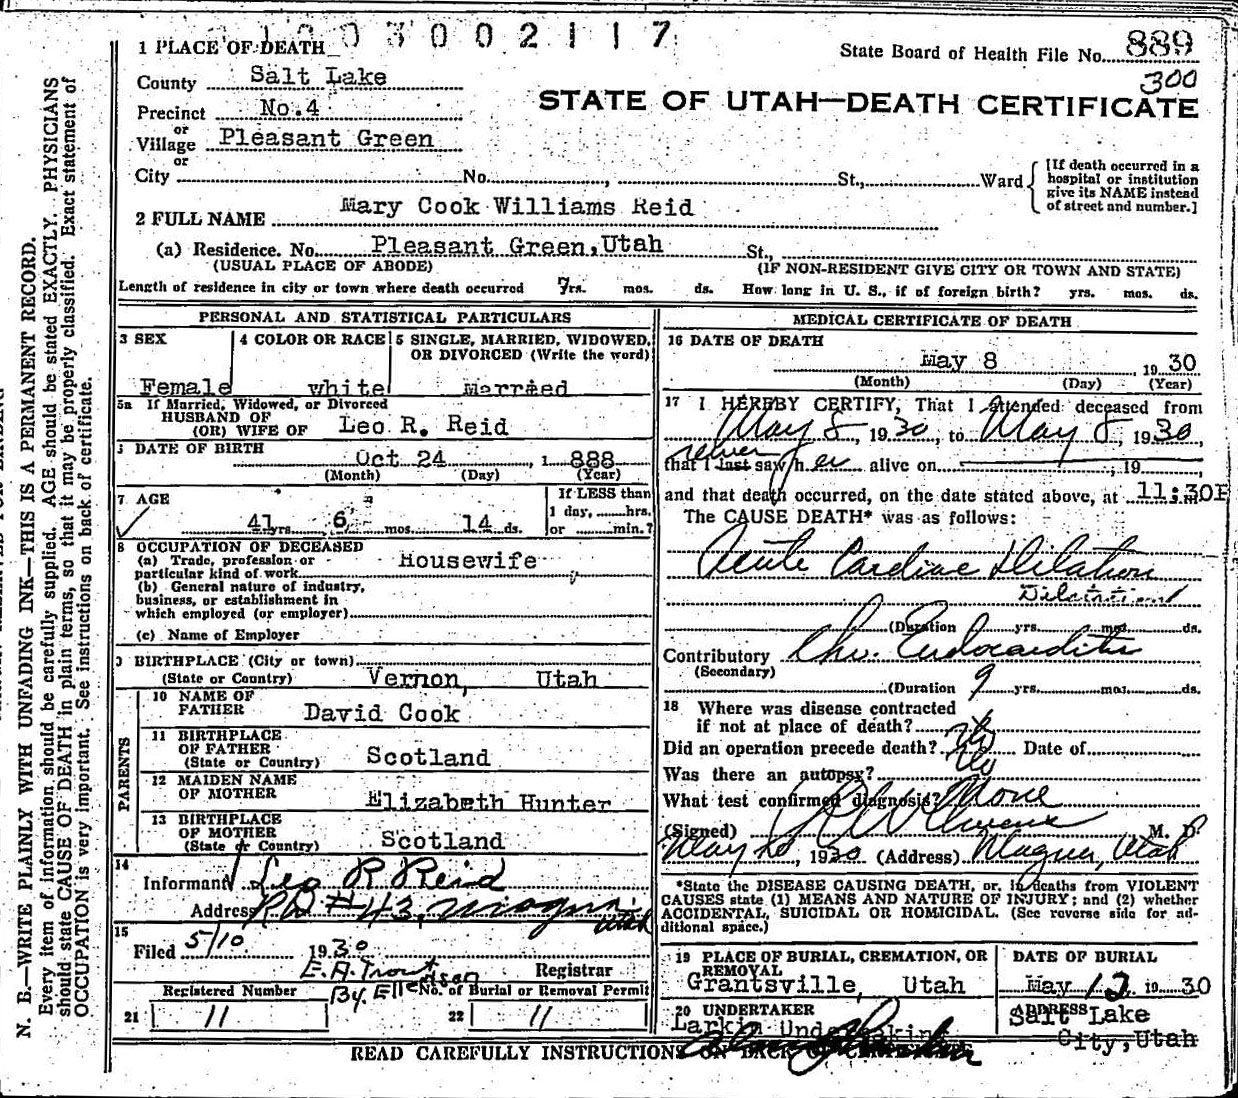 0 3 0 0 2 1 1 7
1 PLACE OF DEATH
State Board of Health File No. 889
300
County Salt Lake
STATE OF UTAH—DEATH CERTIFICATE
Precinct No.4
or
Village Pleasant Green
or
City No. , St., Ward
[If death occurred in a
hospital or institution
give its NAME instead
of street and number.]
2 FULL NAME Mary Cook Williams Reid
(a) Residence. No. Pleasant Green,Utah St.,
(USUAL PLACE OF ABODE) (IF NON-RESIDENT GIVE CITY OR TOWN AND STATE)
Length of residence in city or town where death occurred 7yrs. mos. ds. How long in U. S., if of foreign birth? yrs. mos. ds.
PERSONAL AND STATISTICAL PARTICULARS
3 SEX 4 COLOR OR RACE 5 SINGLE, MARRIED, WIDOWED,
OR DIVORCED (Write the word)
Female white Married
5a If Married, Widowed, or Divorced
HUSBAND OF
(OR) WIFE OF Leo R. Reid
DATE OF BIRTH
Oct 24 , 1 888
(Month) (Day) (Year)
7 AGE
If LESS than
1 day, hrs.
41 yrs. 6 mos. 14 ds. or min.?
8 OCCUPATION OF DECEASED
(a) Trade, profession or
particular kind of work Housewife
(b) General nature of industry,
business, or establishment in
which employed (or employer)
(c) Name of Employer
9 BIRTHPLACE (City or town)
(State or Country) Vernon, Utah
PARENTS
10 NAME OF
FATHER David Cook
11 BIRTHPLACE
OF FATHER
(State or Country) Scotland
12 MAIDEN NAME
OF MOTHER Elizabeth Hunter
13 BIRTHPLACE
OF MOTHER
(State or Country) Scotland
14
Informant Leo R Reid
Address RD #43, Magna Utah
15
Filed 5/10 1930
E. A. Trout
Registrar
By
Registered Number No. of Burial or Removal Permit
21 11 22 11
MEDICAL CERTIFICATE OF DEATH
16 DATE OF DEATH
May 8 , 1930
(Month) (Day) (Year)
17 I HEREBY CERTIFY, That I attended deceased from
May 8, 1930, to May 8, 1930
never
that I last saw her alive on , 19 ,
and that death occurred, on the date stated above, at 11:30P m
The CAUSE DEATH* was as follows:
Acute Cardiac Dilation
(Duration yrs. mos. ds.
Contributory Chr. Endocarditis
(Secondary)
(Duration 9 yrs. mos. ds.
18 Where was disease contracted
if not at place of death?
Did an operation precede death? No Date of
Was there an autopsy? No
What test confirmed diagnosis? None
(Signed) , M. D.
May 10, 1930 (Address) Magna, Utah
*State the DISEASE CAUSING DEATH, or, in deaths from VIOLENT
CAUSES state (1) MEANS AND NATURE OF INJURY; and (2) whether
ACCIDENTAL, SUICIDAL OR HOMICIDAL. (See reverse side for ad-
ditional space.)
19 PLACE OF BURIAL, CREMATION, OR
REMOVAL
Grantsville, Utah
DATE OF BURIAL
May 12 1930
20 UNDERTAKER
Larkin Undertaking
ADDRESS
Salt Lake
City,Utah
READ CAREFULLY INSTRUCTIONS ON BACK OF CERTIFICATE
N. B.—WRITE PLAINLY WITH UNFADING INK—THIS IS A PERMANENT RECORD.
Every item of information should be carefully supplied. AGE should be stated EXACTLY. PHYSICIANS
should state CAUSE OF DEATH in plain terms, so that it may be properly classified. Exact statement of
OCCUPATION is very important. See instructions on back of certificate.